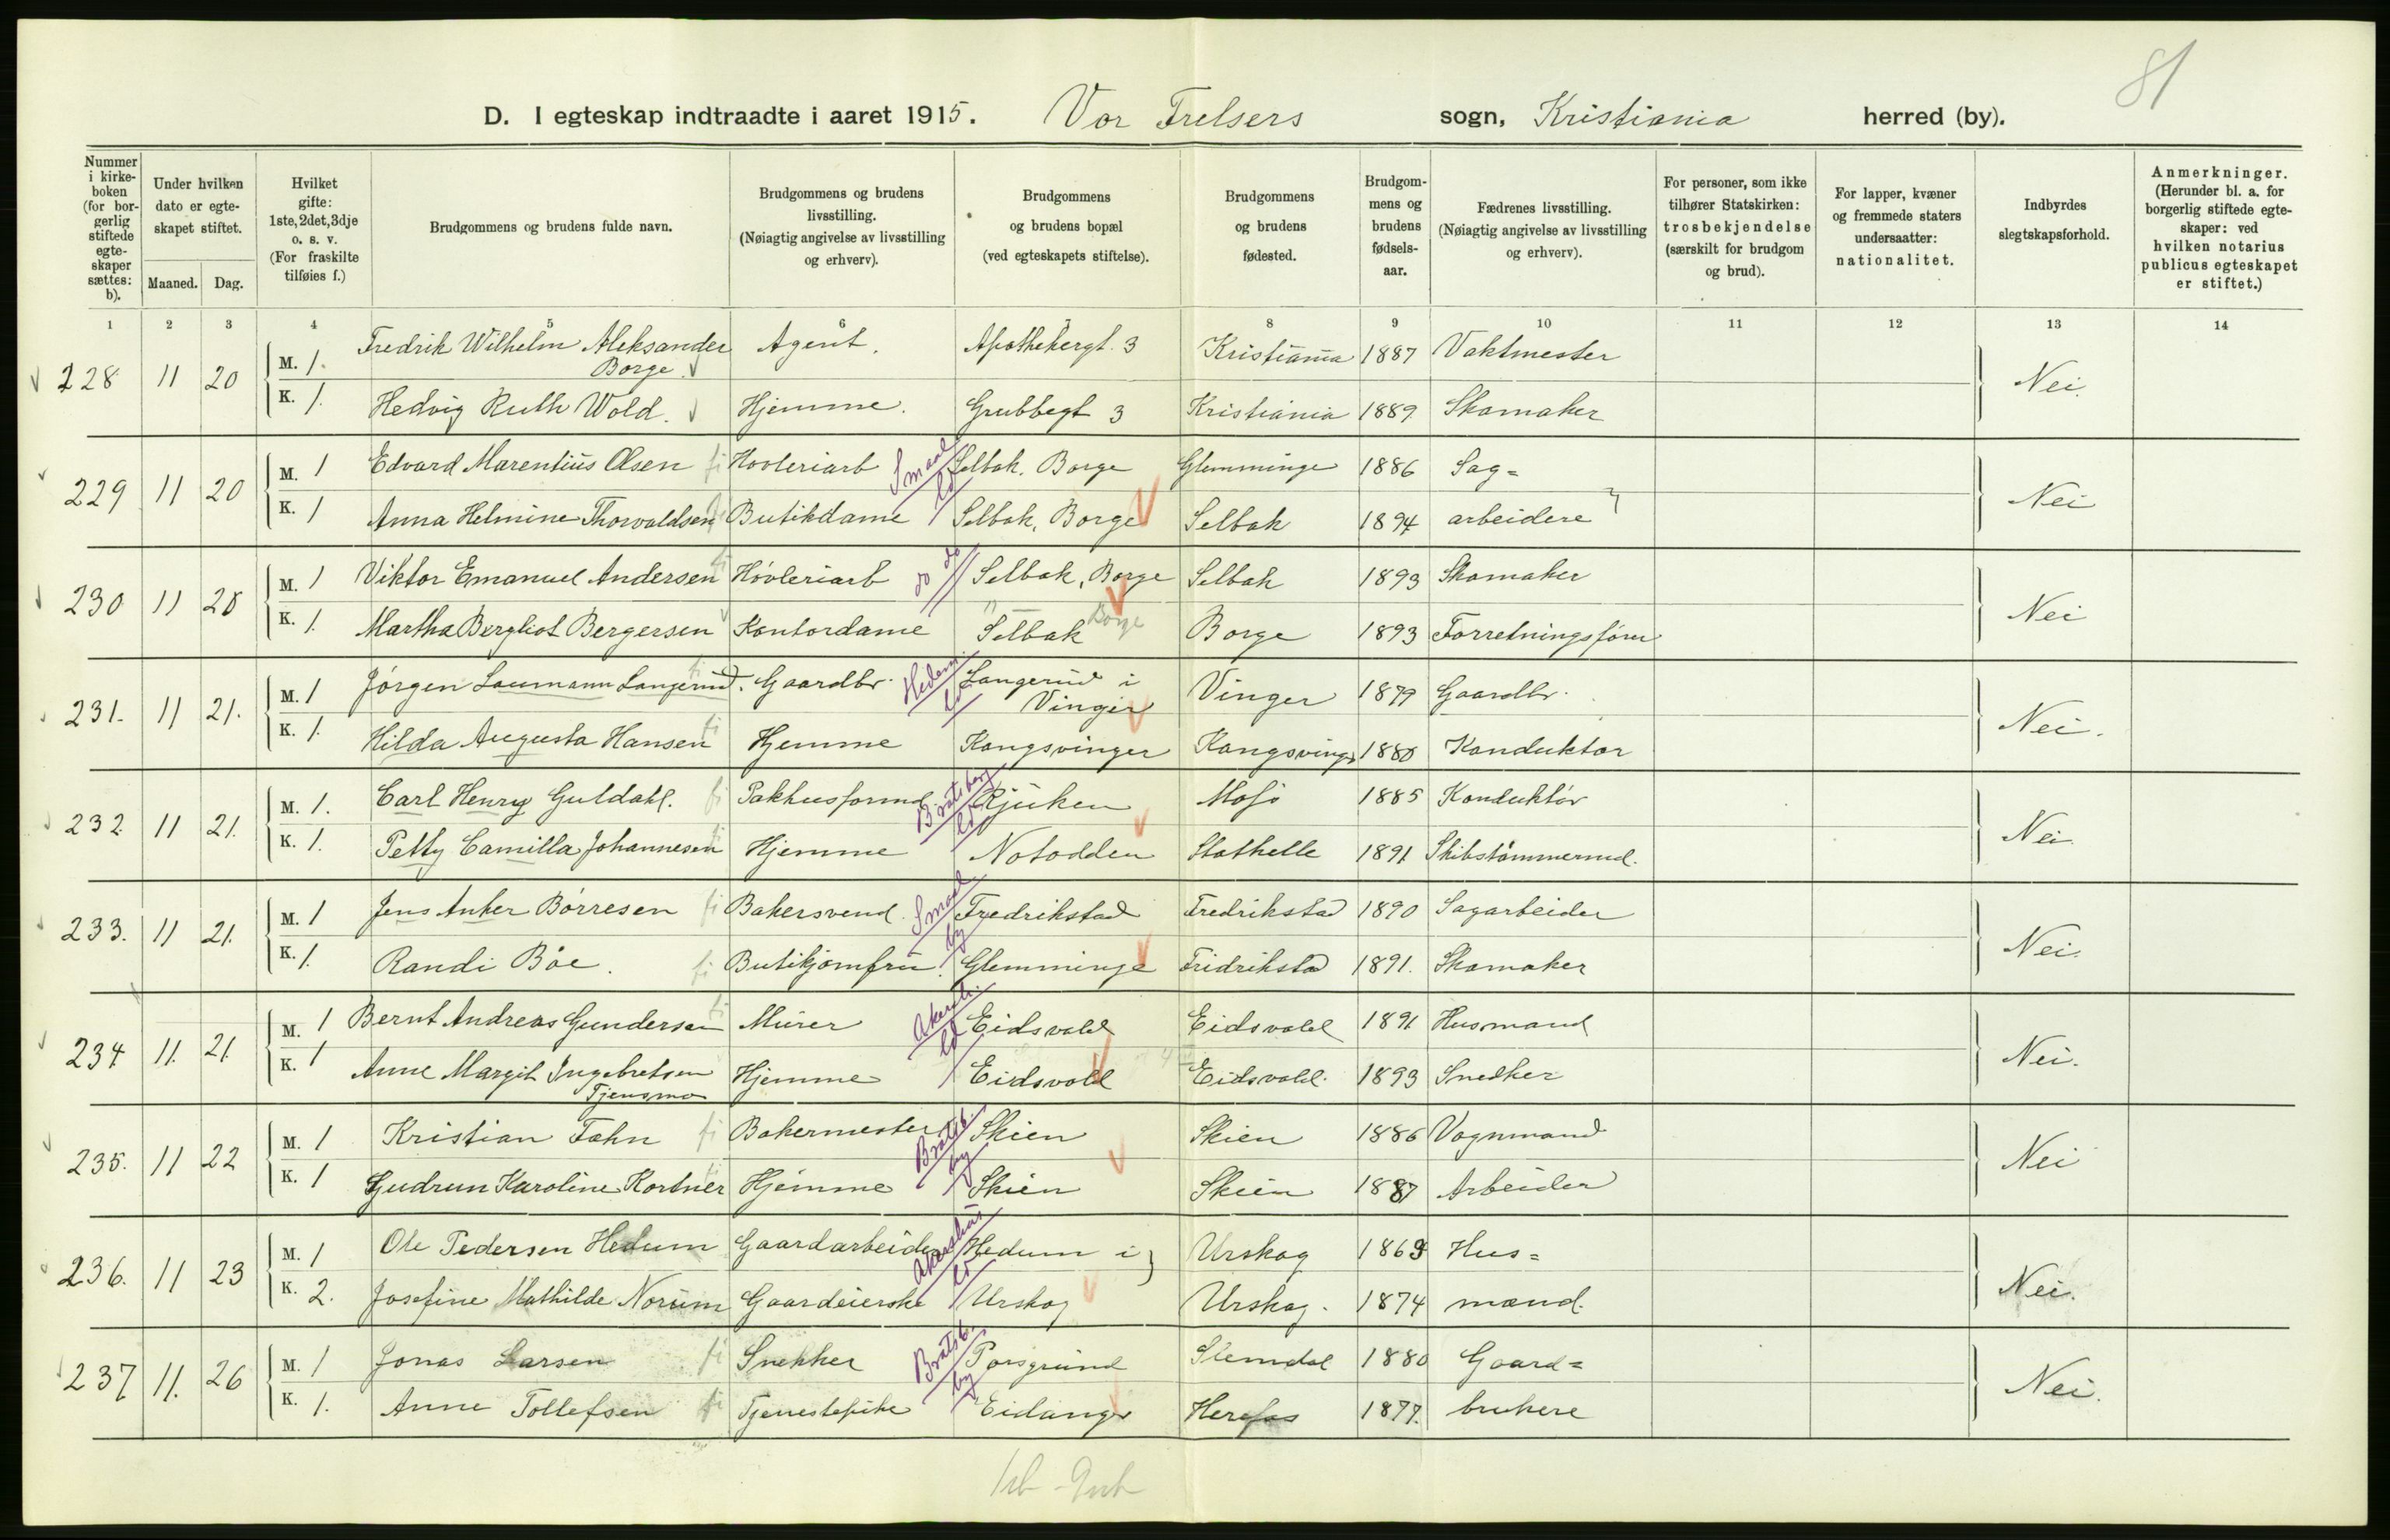 81
D. I egteskap indtraadte i aaret 1915. Vor Frelsers sogn, Kristiania herred (by).
Nummer i kirkeboken (for borgerlig stiftede egteskaper sættes: b). Under hvilken dato er egteskapet stiftet. Maaned. Dag. Hvilket gifte: 1ste, 2det, 3dje o. s. v. (For fraskilte tilføies f.) Brudgommens og brudens fulde navn. Brudgommens og brudens livsstilling. (Nøiagtig angivelse av livsstilling og erhverv). Brudgommens og brudens bopæl (ved egteskapets stiftelse). Brudgommens og brudens fødested. Brudgommens og brudens fødselsaar. Fædrenes livsstilling. (Nøiagtig angivelse av livsstilling og erhverv). For personer, som ikke tilhører Statskirken: trosbekjendelse (særskilt for brudgom og brud). For lapper, kvæner og fremmede staters undersaatter: nationalitet. Indbyrdes slegtskapsforhold. Anmerkninger. (Herunder bl. a. for borgerlig stiftede egteskaper: ved hvilken notarius publicus egteskapet er stiftet.)
1 2 3 4 5 6 7 8 9 10 11 12 13 14
228 11 20 M. 1. Fredrik Wilhelm Aleksander Borge Agent. Apothekergt. 3 Kristiania 1887 Vaktmester Nei.
K. 1. Hedvig Ruth Wold. Hjemme. Grubbegt 3 Kristiania 1889 Skomaker
229 11 20 M. 1 Edvard Marentius Olsen Høvleriarb Smaal ld Selbak, Borge Glemminge 1886 Sag= Nei
K. 1 Anna Helmine Thorvaldsen Butikdame Selbak, Borge Selbak 1894 arbeidere
230 11 20 M. 1 Viktor Emanuel Andersen Høvleriarb do do Selbak, Borge Selbak 1893 Skomaker Nei
K. 1. Martha Bergliot Bergersen Kontordame Selbak Borge Borge 1893 Forretningsfører
231. 11 21. M. 1 Jørgen Laumann Langerud. Gaardbr. Hedem. ld Langerud i Vinger Vinger 1879 Gaardbr. Nei.
K. 1. Hilda Augusta Hansen Hjemme Kongsvinger Kongsvinger 1880 Konduktør
232 11 21. M. 1. Carl Henry Guldahl. Pakhusformd Bratsberg ld Rjuken Mosjø 1885 Konduktør Nei
K. 1. Petty Camilla Johannesen Hjemme Notodden Stathelle 1891 Skibstømmermd.
233. 11 21. M. 1 Jens Anker Børresen Bakersvend. Smaal by Fredrikstad Fredrikstad 1890 Sagarbeider Nei.
K. 1. Randi Bøe. Butikjomfru. Glemminge Fridrikstad 1891. Skomaker
234 11. 21. M. 1 Bernt Andreas Gundersen Murer Akersh. ld Eidsvold Eidsvold 1891 Husmand Nei.
K. 1 Anne Margit Ingebretsen Tjensmo Hjemme Eidsvold Eidsvold. 1893 Snedker
235. 11 22 M. 1 Kristian Fahn Bakermester Bratsb. by Skien Skien 1886 Vognmand Nei
K. 1 Gudrun Karoline Kortner Hjemme Skien Skien 1887 Arbeider
236. 11 23 M. 1 Ole Pedersen Hedum Gaardarbeider Akershus ld Hedum i Urskog 1869 Hus= Nei.
K. 2. Josefine Mathilde Norum Gaardeierske Urskog Urskog. 1874 mænd.
237 11. 26 M. 1 Jonas Larsen Snekker Bratsb. by Porsgrund Slemdal 1880 Gaard= Nei.
K. 1. Anne Tollefsen Tjenestepike Eidanger Herefos 1877. brukere